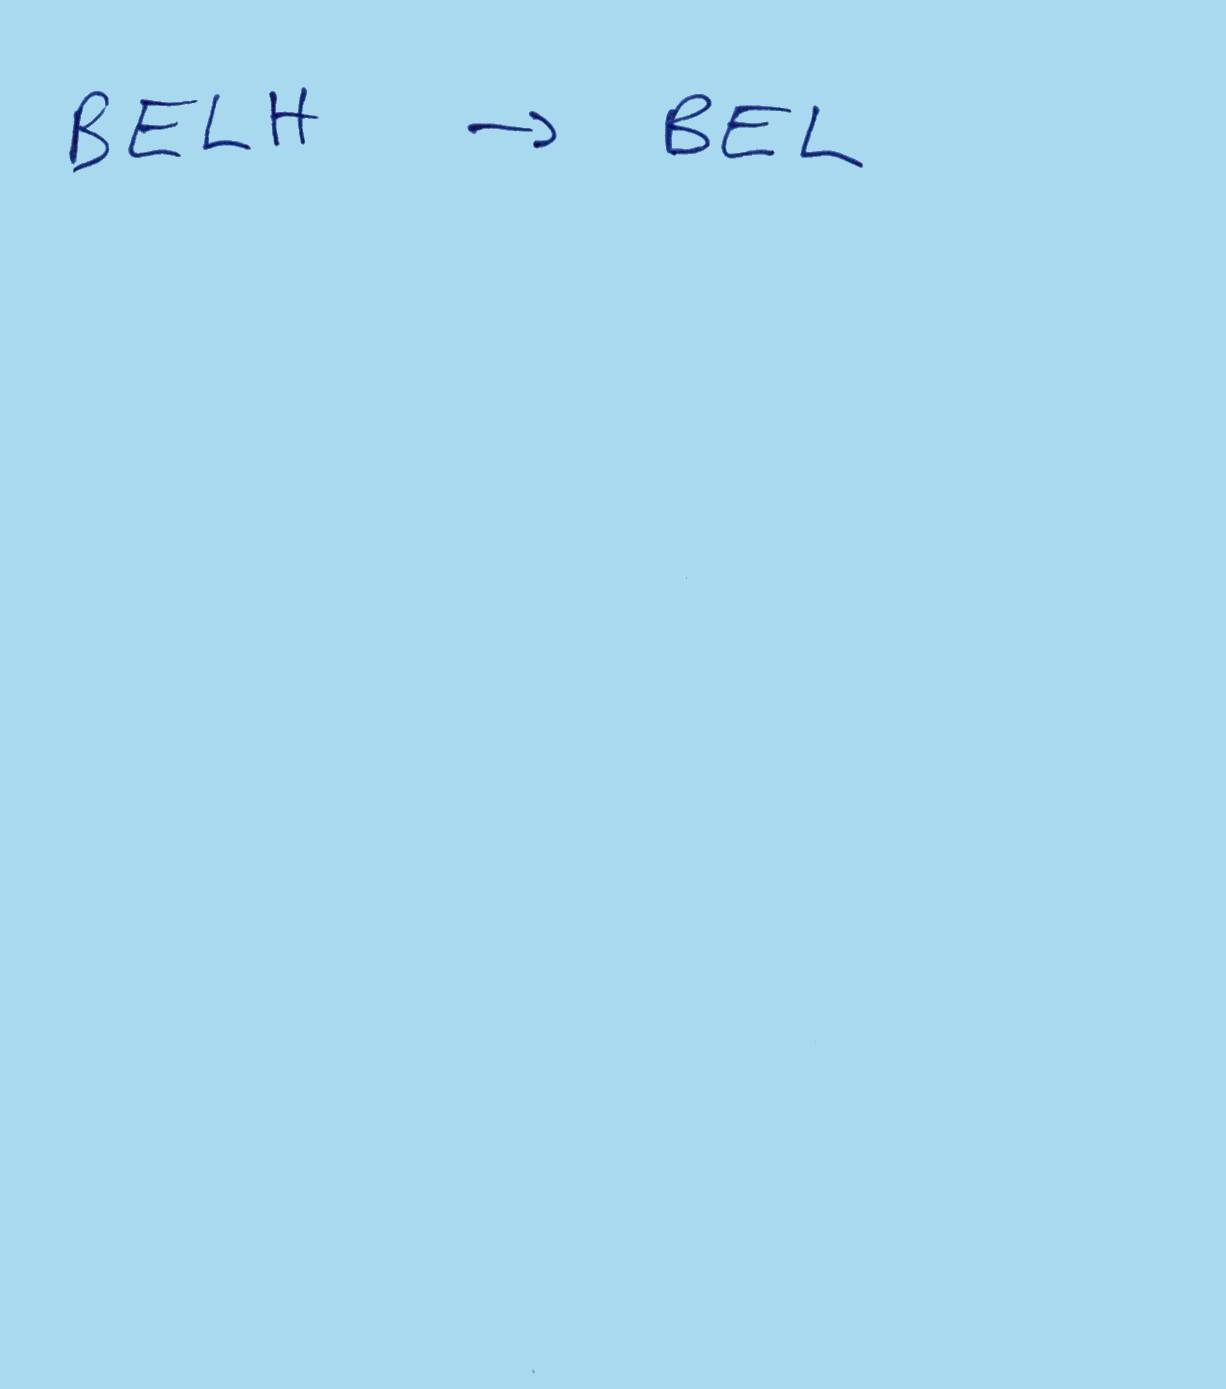 BELH → BEL